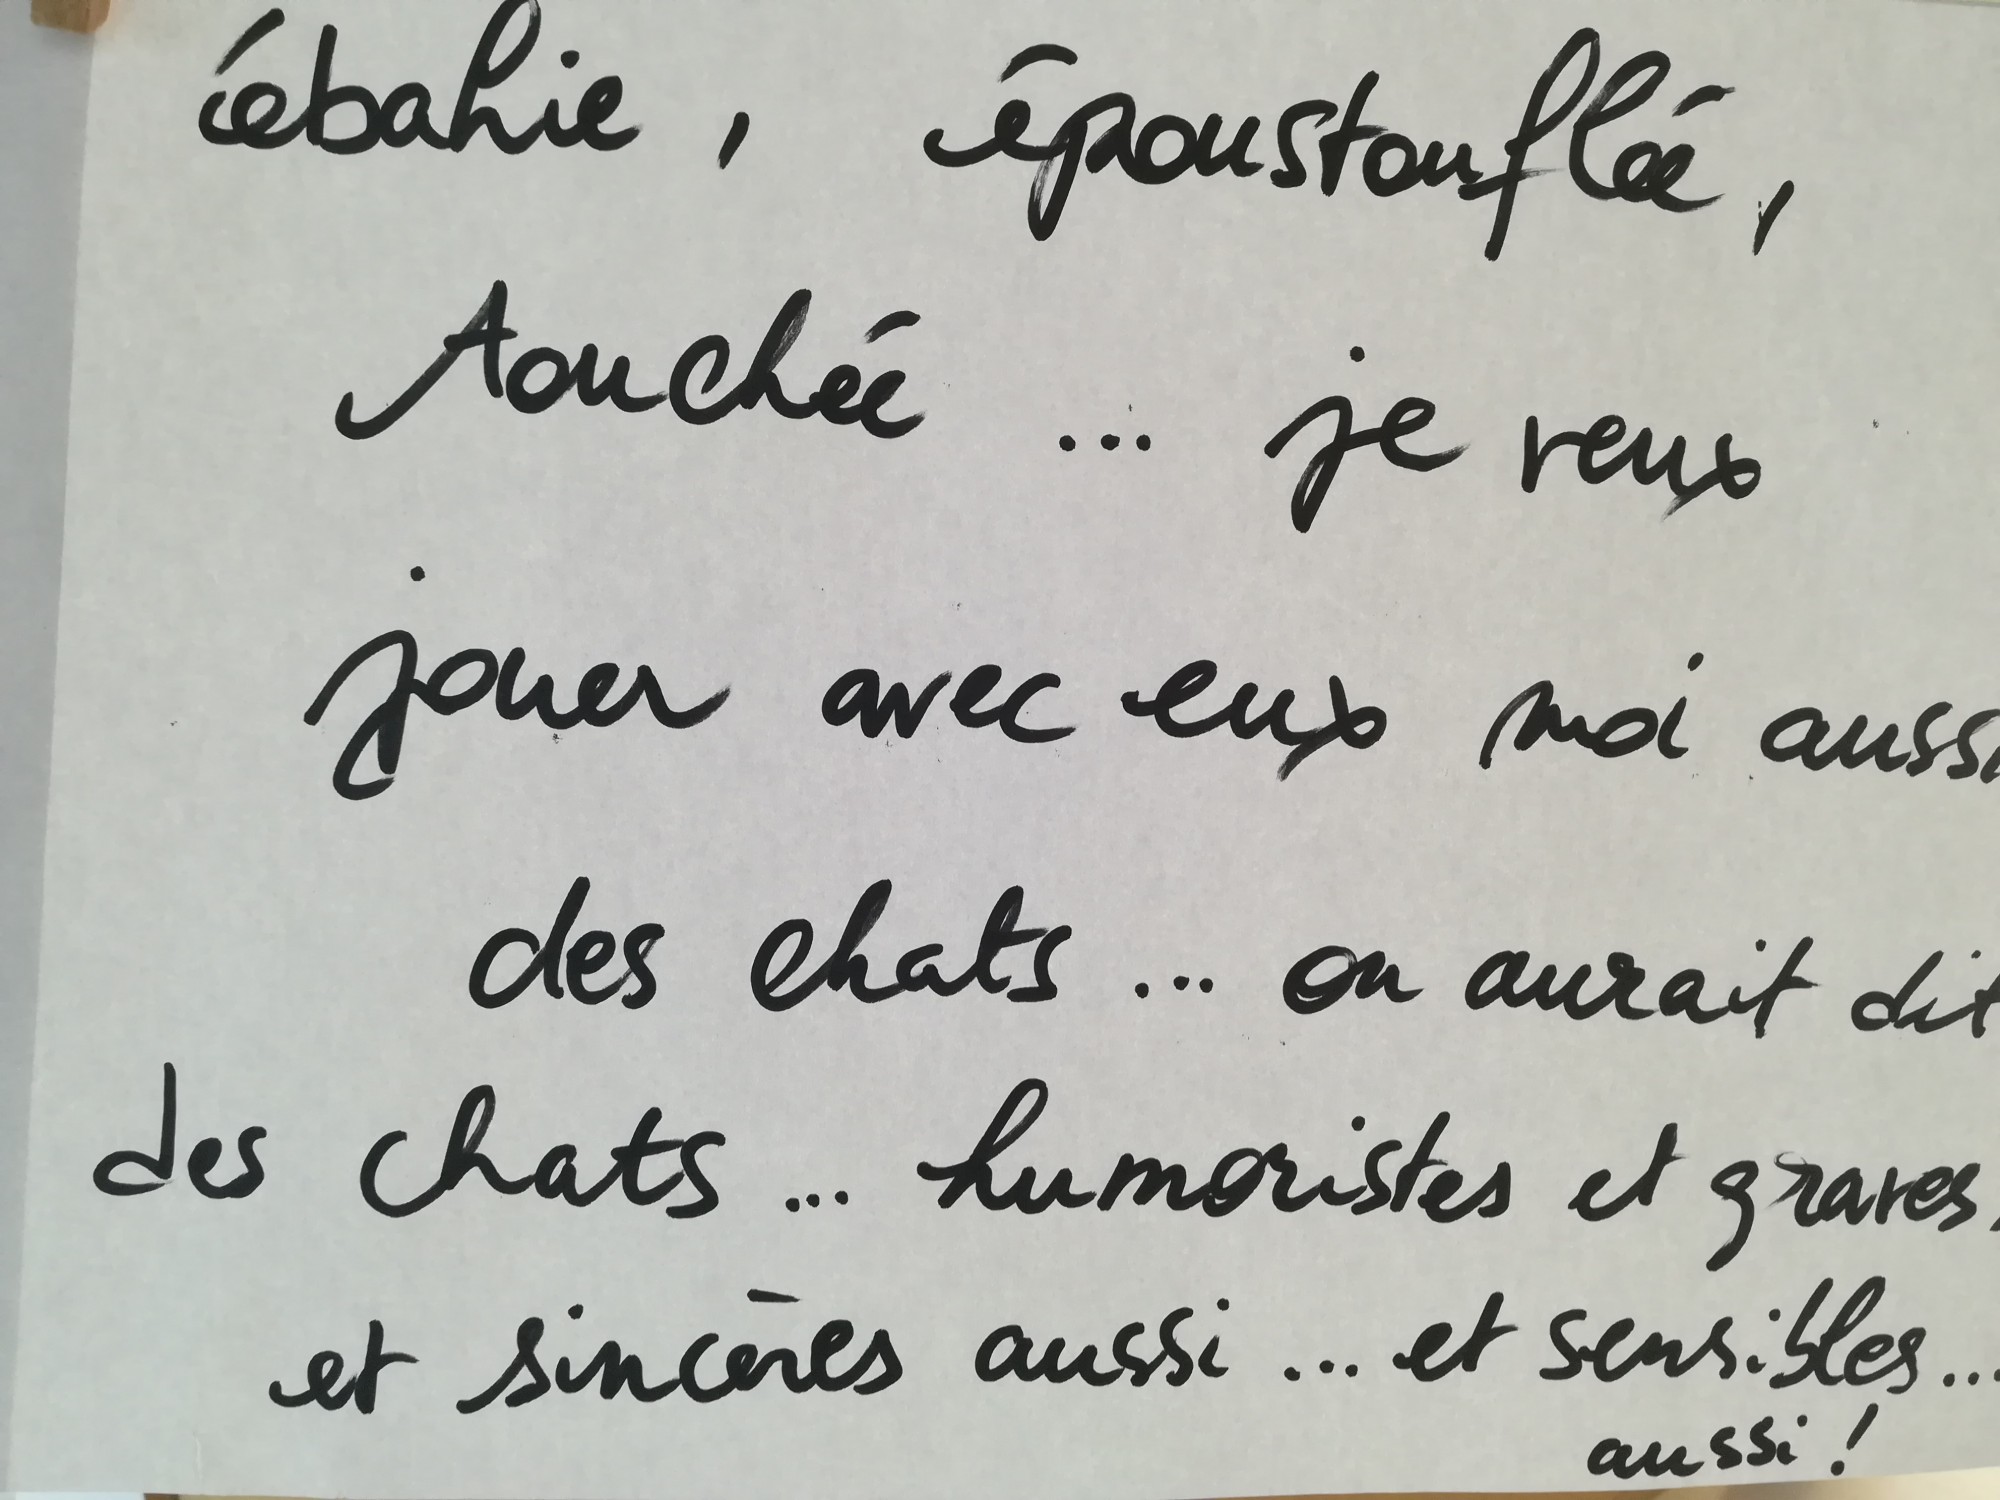 ébahie, époustouflée,
touchée ... je veux
jouer avec eux moi aussi
des chats ... on aurait dit
des chats ... humoristes et graves.
et sincères aussi ... et sensibles ...
aussi !